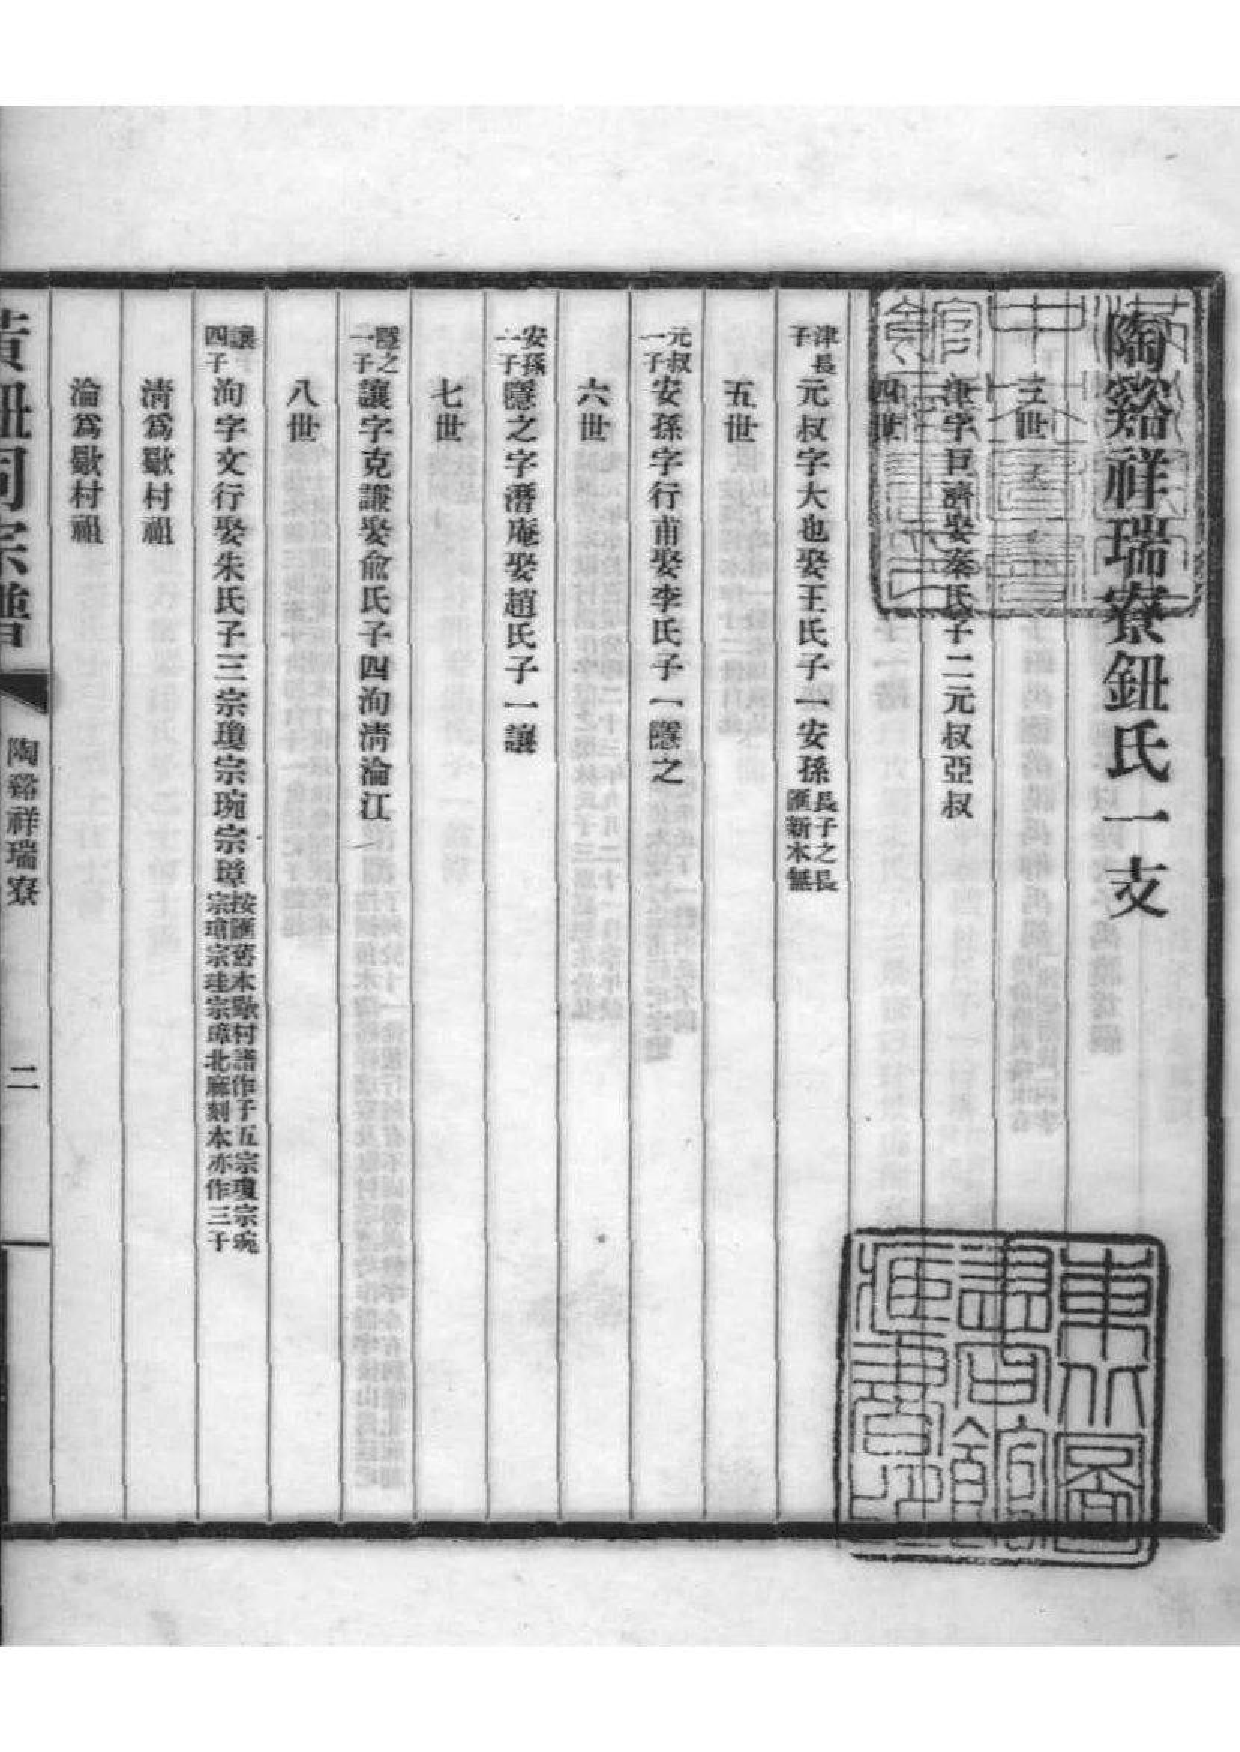 陶谿祥瑞寮鈕氏一支
三世
津字巨濟娶秦氏子二元叔亞叔
四世
津長子元叔字大也娶王氏子一安孫長子之長匯新本無
五世
元叔一子安孫字行甫娶李氏子一隱之
六世
安孫一子隱之字潛庵娶趙氏子一讓
七世
隱之一子讓字克謙娶俞氏子四洵淸淪江
八世
讓四子洵字文行娶朱氏子三宗瓊宗琬宗璋按匯舊本歇村譜作子五宗瓊宗琬宗琯宗珪宗璋北麻刻本亦作三子
淸爲歇村祖
淪爲歇村祖
黃鈕同宗譜
陶谿祥瑞寮
二
東方圖書館